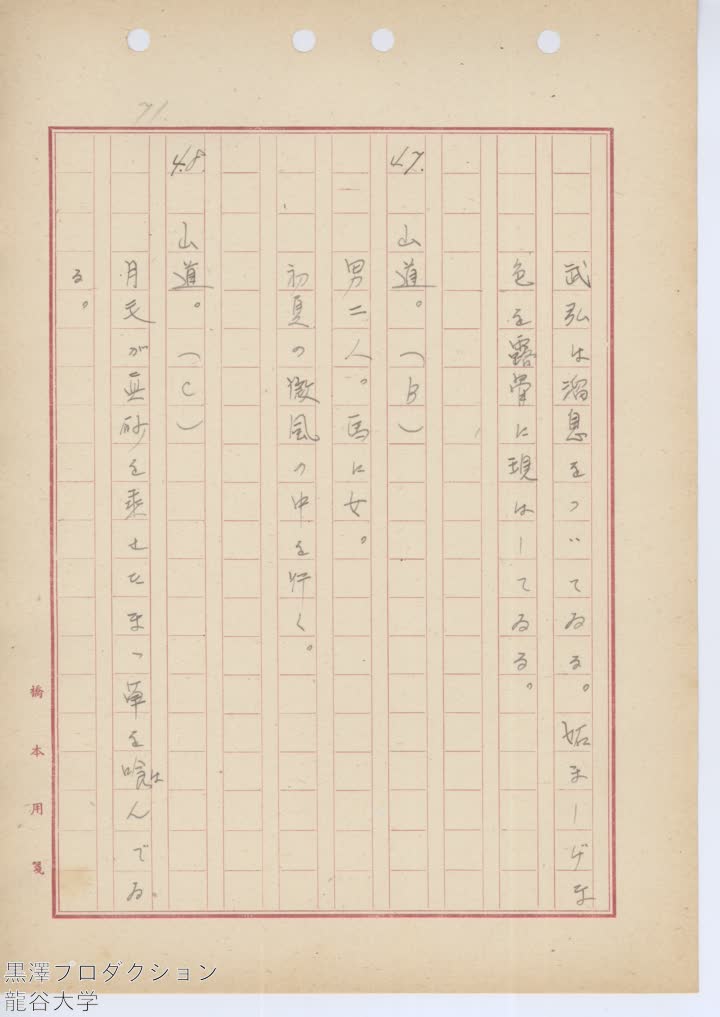 71.
武弘は溜息をついてゐる。妬ましげな
色を露骨に現はしてゐる。
47. 山道。(B)
男二人。馬に女。
初夏の微風の中を行く。
48. 山道。(C)
月毛が真砂を乗せたまゝ草を喰はんでゐ
る。
橋本用箋
黒澤プロダクション
龍谷大学